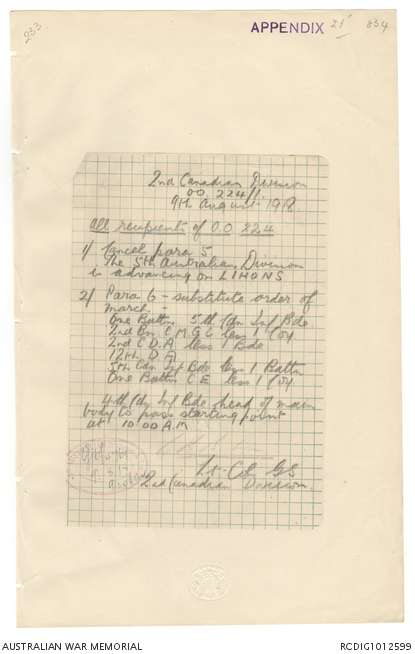 233
APPENDIX 21
834
2nd Canadian Division
OO 224/1
9th August 1918
All recipients of OO 224
1/ Cancel para 5
The 5th Australian Division
is advancing on LIHONS
2/ Para 6 - substitute order of
march
One Battn 5th Cdn Inf Bde
2nd Bn C.M.G.C less 1 Coy
2nd C.D.A less 1 Bde
12th D.A
5th Cdn Inf Bde less 1 Battn
One Battn C.E less 1 Coy
4th Cdn Inf Bde head of main
body to pass starting point
at 10.00 A.M
Lt-Col GS
2nd Canadian Division
AUSTRALIAN WAR MEMORIAL
RCDIG1012599